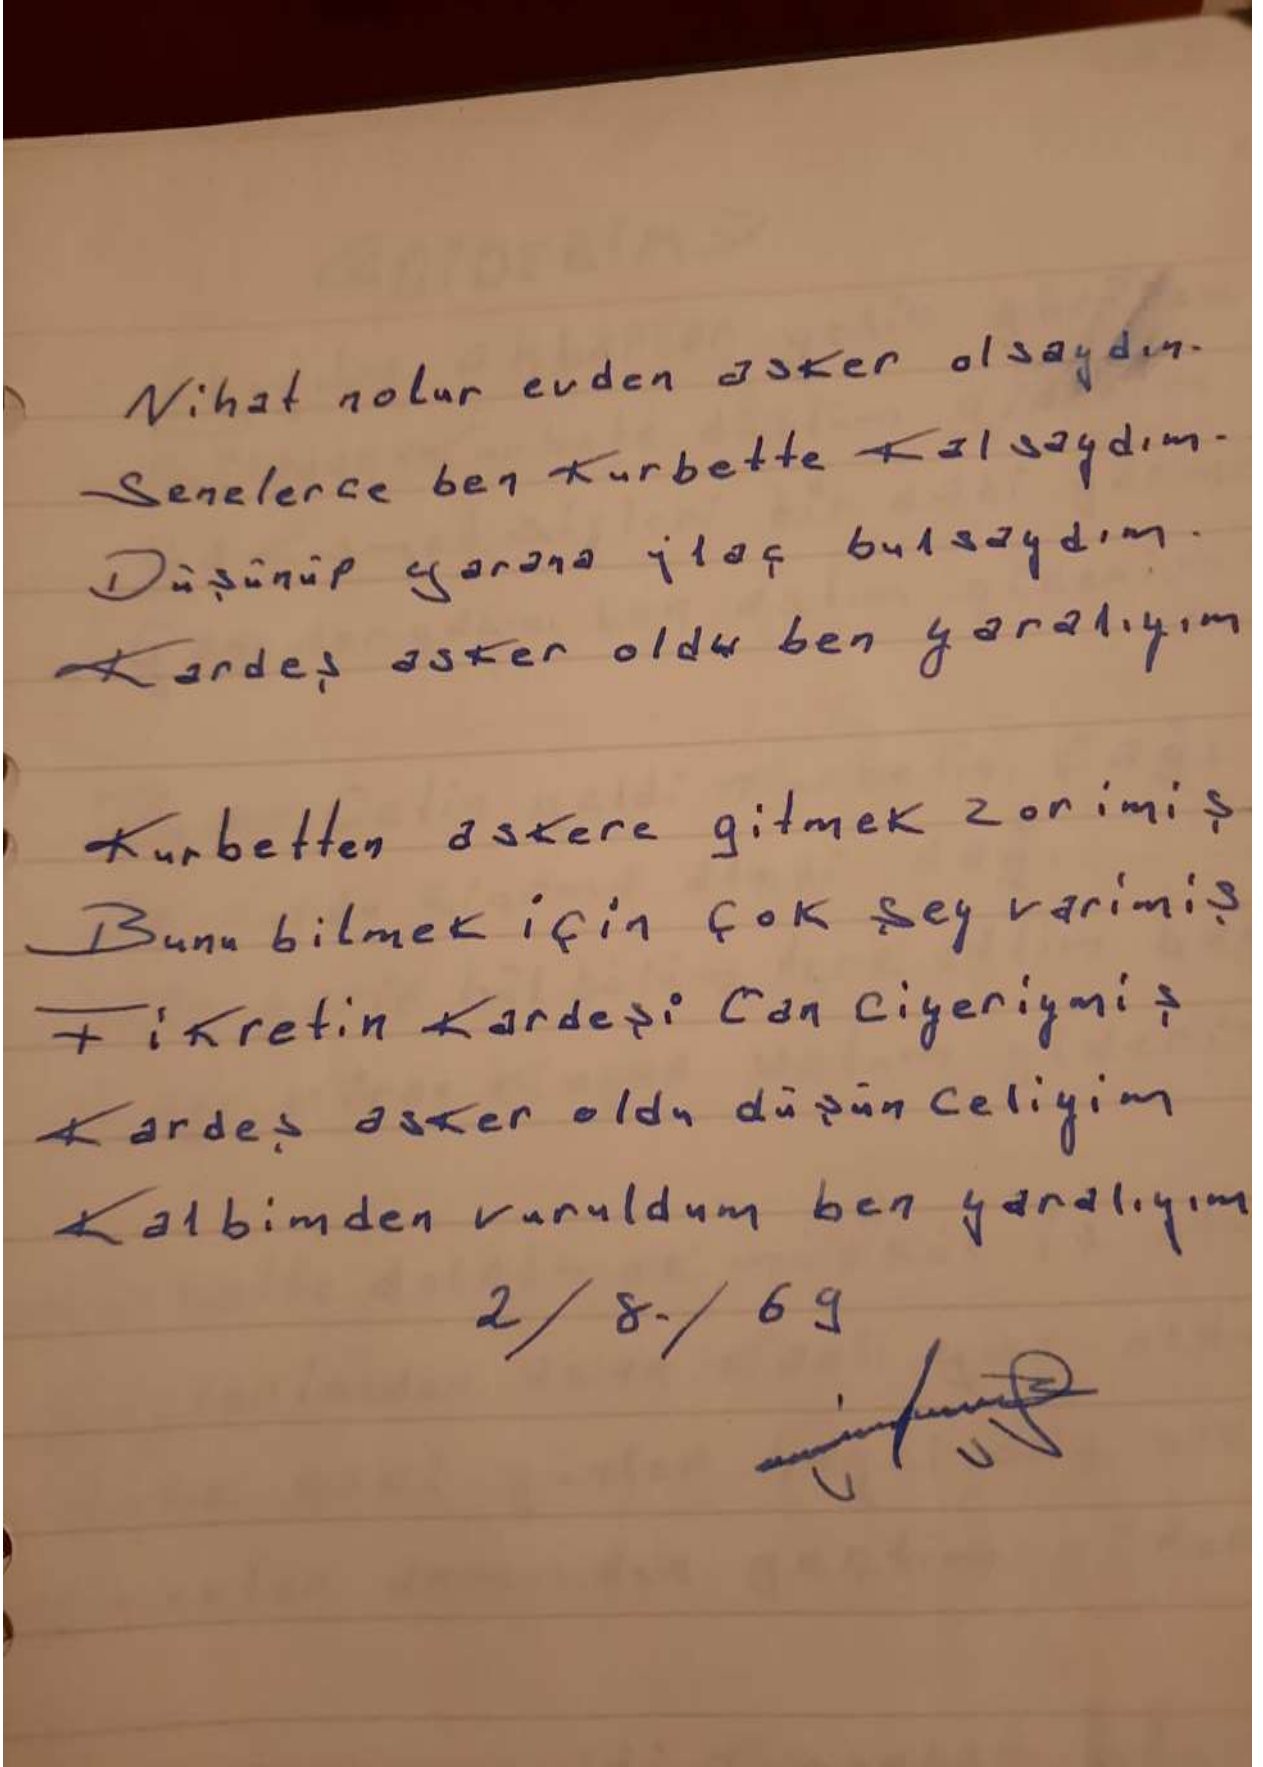 Nihat nolur evden asker olsaydın.
Senelerce ben Kurbette Kalsaydım.
Düşünüp yarana ilaç bulsaydım.
Kardeş asker oldu ben yaralıyım
Kurbetten askere gitmek zor imiş
Bunu bilmek için çok şey varimiş
Fikretin Kardeşi Can Ciyeriymiş
Kardeş asker oldu düşünceliyim
Kalbimden vuruldum ben yaralıyım
2/8./69